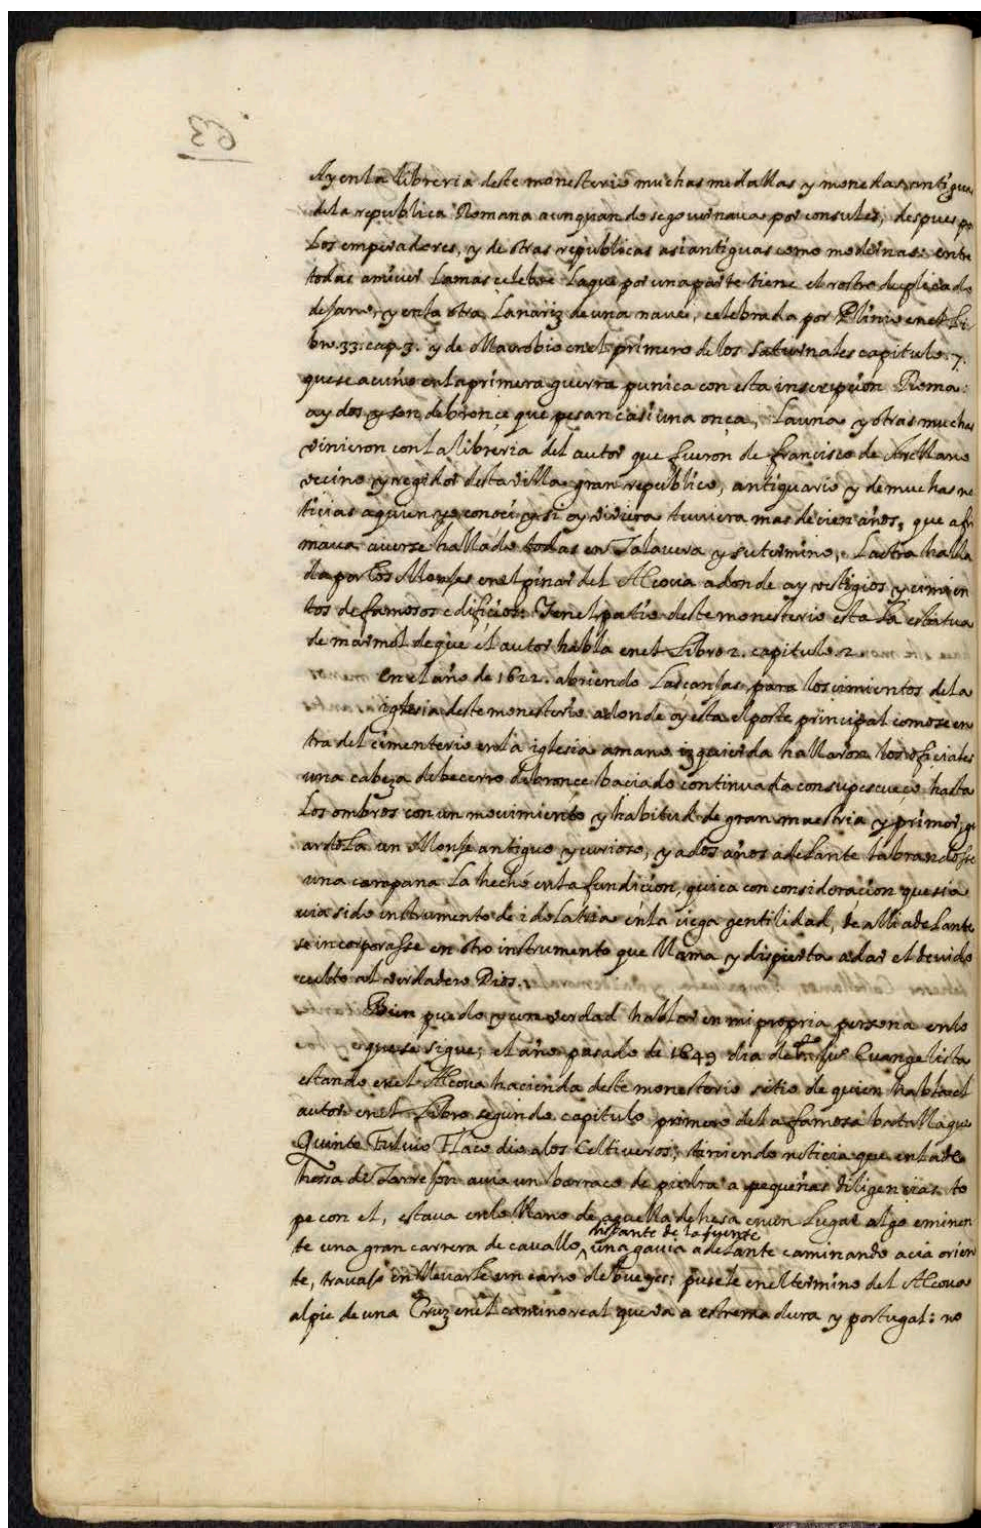 Ay en la libreria deste monesterio muchas medallas y monedas antiguas
de la republica Romana aun quando se governava por consules, despues po
los emperadores, y de otras republicas asi antiguas como modernas: entre
todas a mi ver la mas celebre la que por una parte tiene el rostro duplicado
de Jano, y en la otra la nariz de una nave, celebrada por Plinio en el li
bro. 33. cap. 3. y de Macrobio en el primero de los saturnales capitulo. 7.
que se acuño en la primera guerra punica con esta inscripcion Roma:
ay dos y son de bronçe que pesan casi una onça, la una y otras muchas
vinieron con la libreria del autor que fueron de francisco de Arellano
vecino y regidor desta villa gran republico, antiquario y de muchas no
ticias a quien yo conoci y si oy viviera tuviera mas de cien años, que afir
mava averse hallado todas en Talavera y su termino, La otra halla
da por los Monjes en el pinar del Alcova adonde ay vestigios y cimien
tos de famosos edificios: Y en el patio deste monesterio esta la estatua
de marmol de que el autor habla en el Libro 2. capitulo 2
En el año de 1622. abriendo las canjas para los cimientos de la
iglesia deste monesterio adonde oy esta el poste principal como se en
tra del cimenterio en la iglesia a mano izquierda hallaron los oficiales
una cabeza de becerro de bronce baciado continuada con su pescueço hasta
los ombros con un movimiento y habitud de gran maestria y primor, gu
ardola un Monje antiguo y curioso, y a dos años adelante labrandose
una campana la hechó en la fundicion, quiça con consideracion que si a
via sido instrumento de idolatria en la ciega gentilidad, de alli adelante
se incorporasse en otro instrumento que llama y dispierta a dar el devido
culto al verdadero Dios.
Bien puedo yo con verdad hablar en mi propria persona en lo
que se sigue; el año pasado de 1649 dia de Evangelista
estando en el Alcova hacienda deste monesterio sitio de quien habla el
autor en el Libro segundo capitulo primero de la famosa batalla que
Quinto Fulvio Flaco dio a los Celtiveros; teniendo noticia que en la de
hesa de Torrejon avia un barraco de piedra a pequeñas diligencias to
pe con el, estava en lo llano de aquella dehesa en un lugar algo eminen
distante de la fuente
te una gran carrera de cavallo, una gavia adelante caminando acia orien
te, travajo en llevarle un carro de bueyes; pusele en el termino del Alcova
al pie de una Cruz en el camino real que va a estremadura y portugal: no